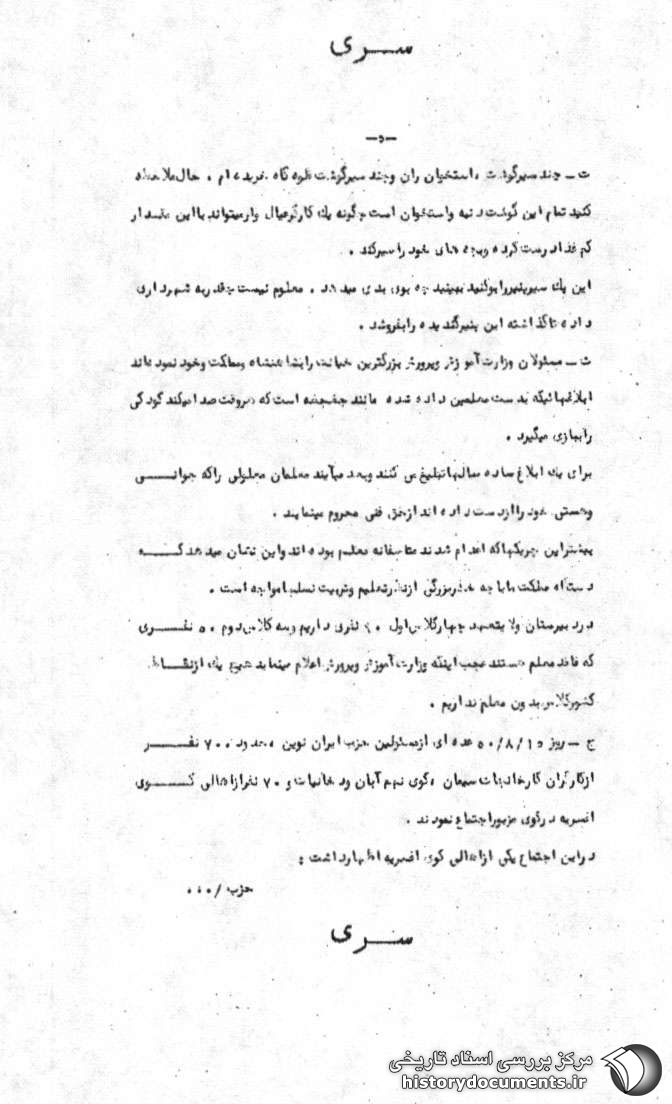 سـری
-۵-
ت - چند سیرگوشت ، استخوان ران وچند سیرگوشت قلوه گاه خریده ام . حال ملاحظه
کنید تمام این گوشت دنبه واستخوان است چگونه یك کارگرعیال وارمیتواند بااین مقدار
کم غذادرست کرده وبچه های خود راسیرکند .
این یك سیرپنیررابوکنید ببینید چه بوی بدی میدهد . معلوم نیست چقدربه شهرداری
داده تاگذاشته این پنیرگندیده رابفروشد .
ث - مسئولان وزارت آموزش وپرورش بزرگترین خیانت رابشاهنشاه ومملکت وخود نموده اند
ابلاغهائیکه بدست معلمین داده شده مانند جغجغه است که هروقت صدامیکند کودکی
راببازی میگیرد .
برای یك ابلاغ ساده سالهاتبلیغ می کنند وبعد میآیند معلمان معلولی راکه جوانـی
وهستی خودراازدست داده اندازحق فنی محروم مینمایند .
بیشتراین چریکهاکه اعدام شدند متاسفانه معلم بوده اند واین نشان میدهد کـه
دستگاه مملکت مابا چه خطربزرگی ازنظرتعلیم وتربیت نسلهامواجه است .
درد بیرستان ولایتعهد چهارکلاس اول ۶۰ نفری داریم وسه کلاس دوم ۵۰ نفـری
که فاقد معلم هستند عجب اینکه وزارت آموزش وپرورش اعلام مینماید هیچ یك ازنقـاط
کشورکلاس بدون معلم نداریم .
ج - روز ۵۰/۸/۱۵ عده ای ازمسئولین حزب ایران نوین ، حدود ۷۰۰ نفـر
ازکارگران کارخانجات سیمان ، کوی نهم آبان ودخانیات و ۷۰ نفرازاهالی کـوی
افسریه درکوی مزبوراجتماع نمودند .
دراین اجتماع یکی ازاهالی کوی افسریه اظهارداشت :
حزب / ۰۰۰
سـری
مرکز بررسی اسناد تاریخی
historydocuments.ir